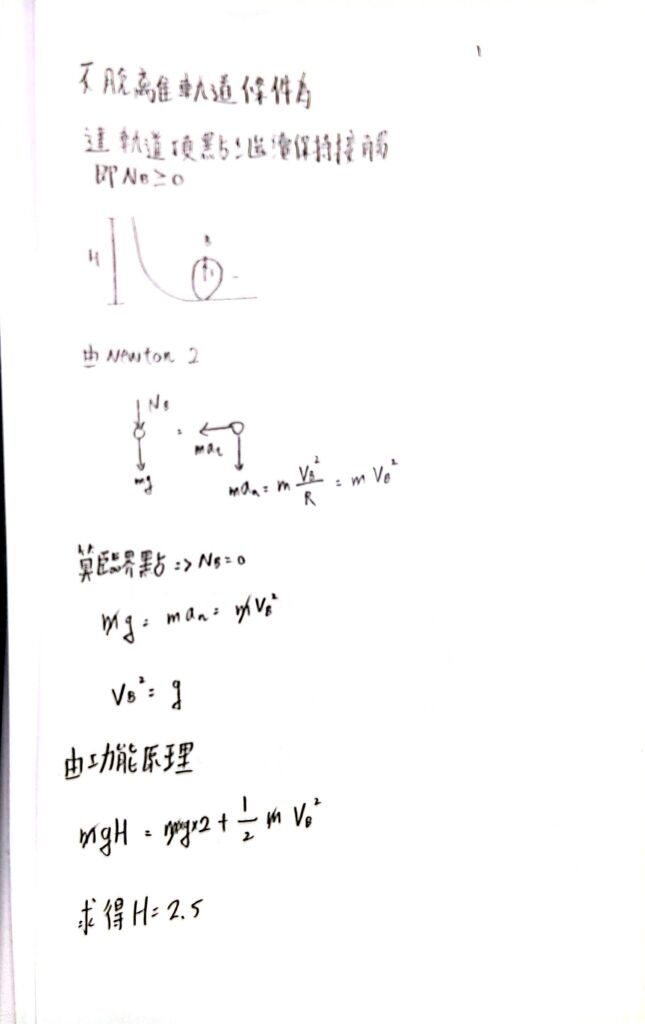 不脫離軌道條件為
達軌道頂點時仍需保持接觸
即 N_B ≥ 0
H
B
1
由 Newton 2
N_B
mg
=
ma_t
ma_n = m V_B²/R = m V_B²
算臨界點 => N_B = 0
mg = ma_n = m V_B²
V_B² = g
由功能原理
mgH = mg×2 + 1/2 m V_B²
求得 H = 2.5